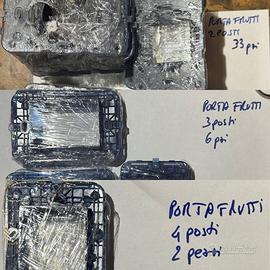 PORTA FRUTTI
2 POSTI
33 pzi
PORTA FRUTTI
3 posti
6 pzi
PORTA FRUTTI
4 posti
2 pezzi